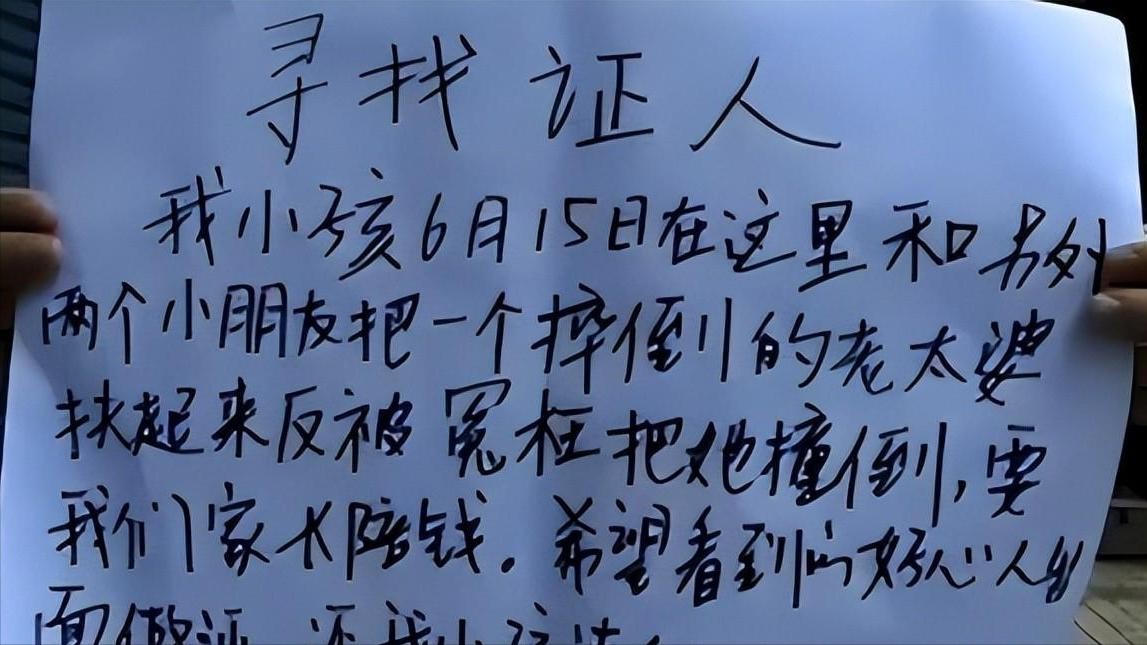 寻找证人
我小孩6月15日在这里和另外
两个小朋友把一个摔倒的老太婆
扶起来反被冤枉把她撞倒,要
我们家长陪钱。希望看到的好心人出
面做证,还我小孩清